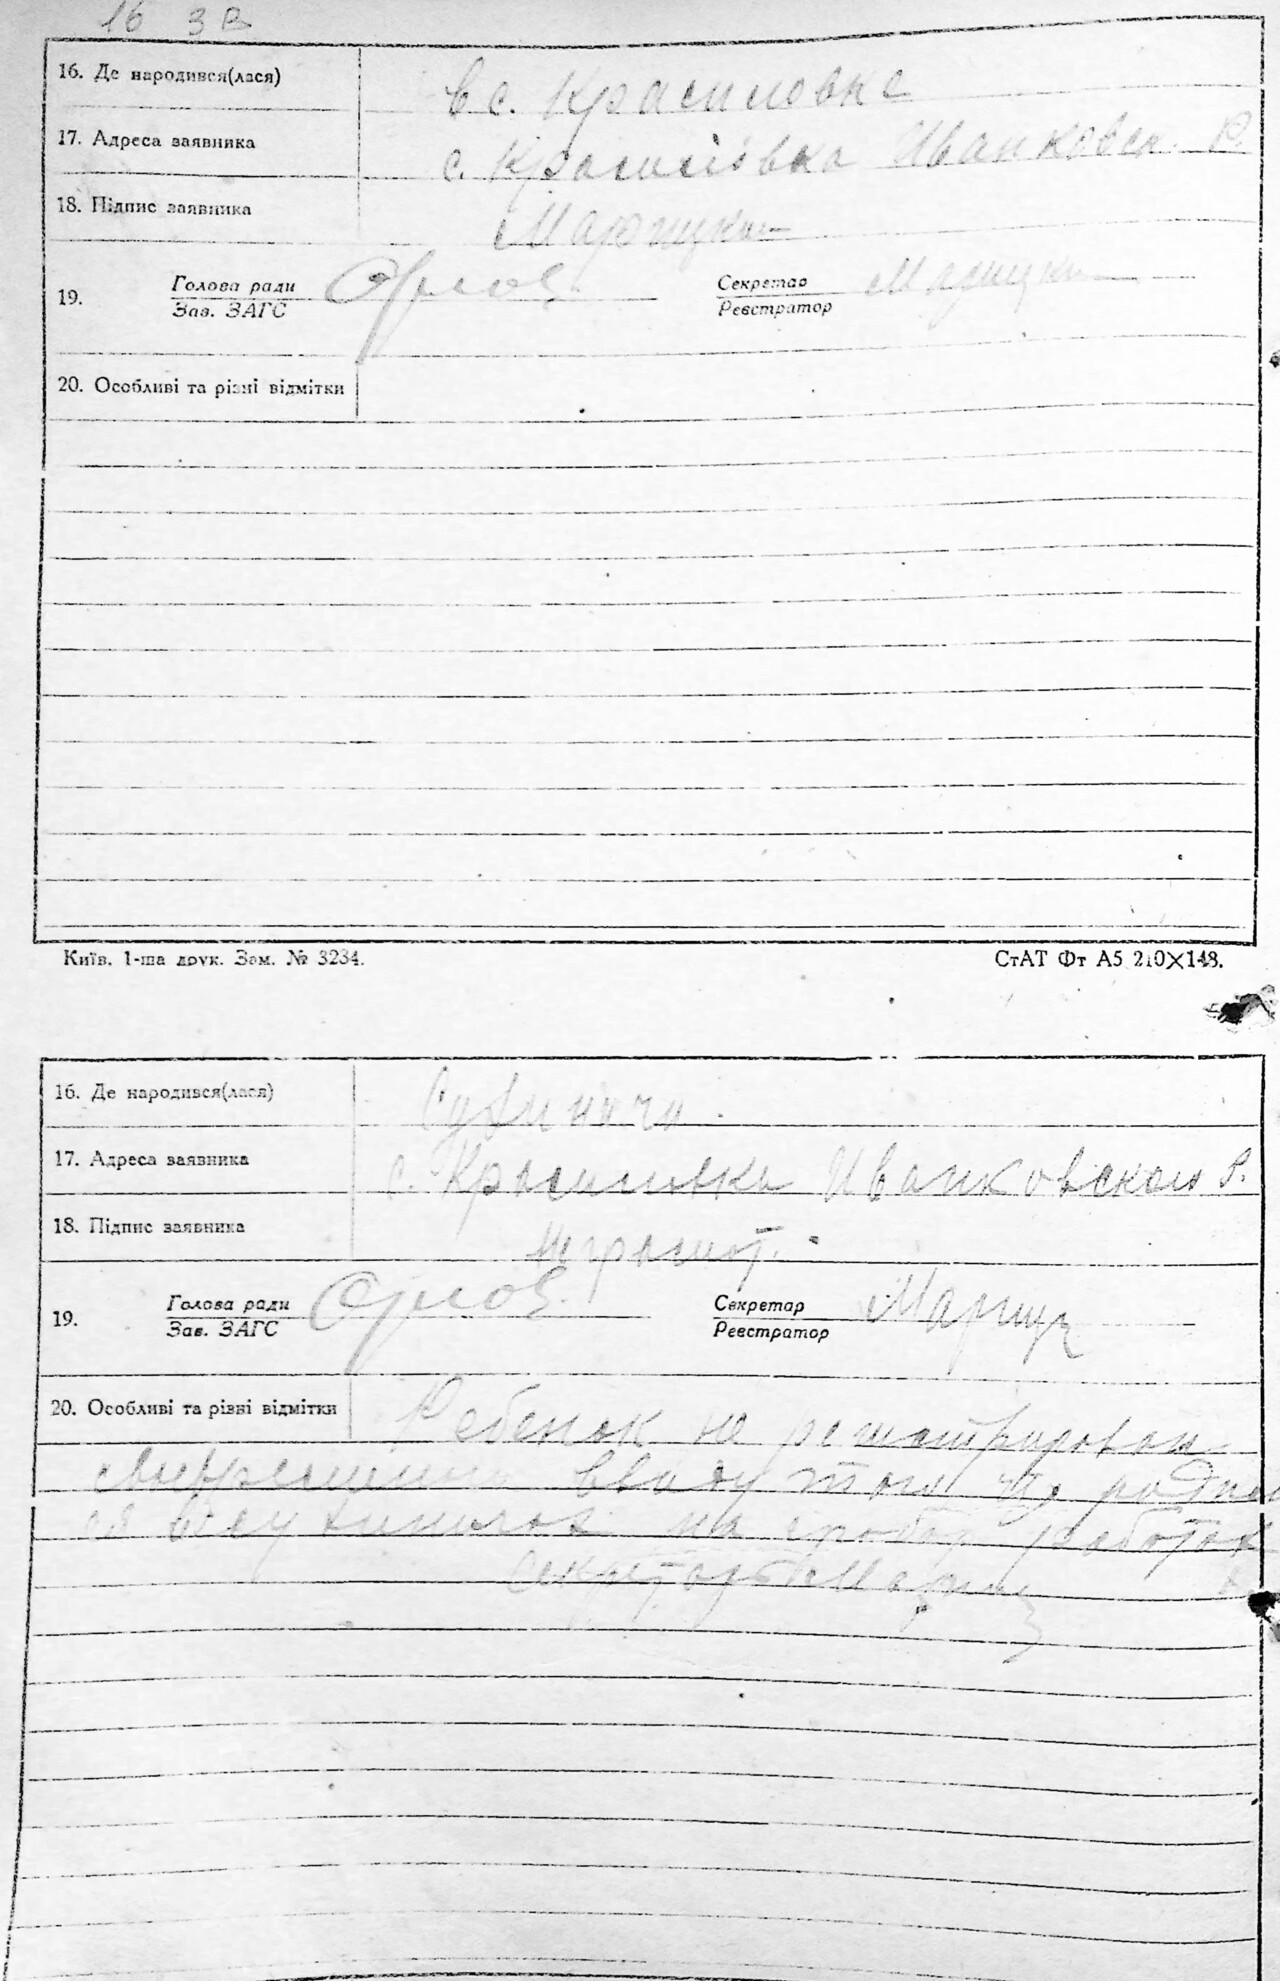 16 зв
16. Де народився(лася) в с. Красиловке
17. Адреса заявника с. Красиловка Иванковск. Р.
18. Підпис заявника
19. Голова ради Орлов Секретар
Зав. ЗАГС Реєстратор
20. Особливі та різні відмітки
Київ. 1-ша друк. Зам. № 3234. СтАТ Фт А5 210×148.
16. Де народився(лася)
17. Адреса заявника с. Красиловка Иванковского Р.
18. Підпис заявника неграмот.
19. Голова ради Орлов Секретар
Зав. ЗАГС Реєстратор
20. Особливі та різні відмітки Ребенок не регистрирован
ввиду того что родил
ся работах
Секретарь